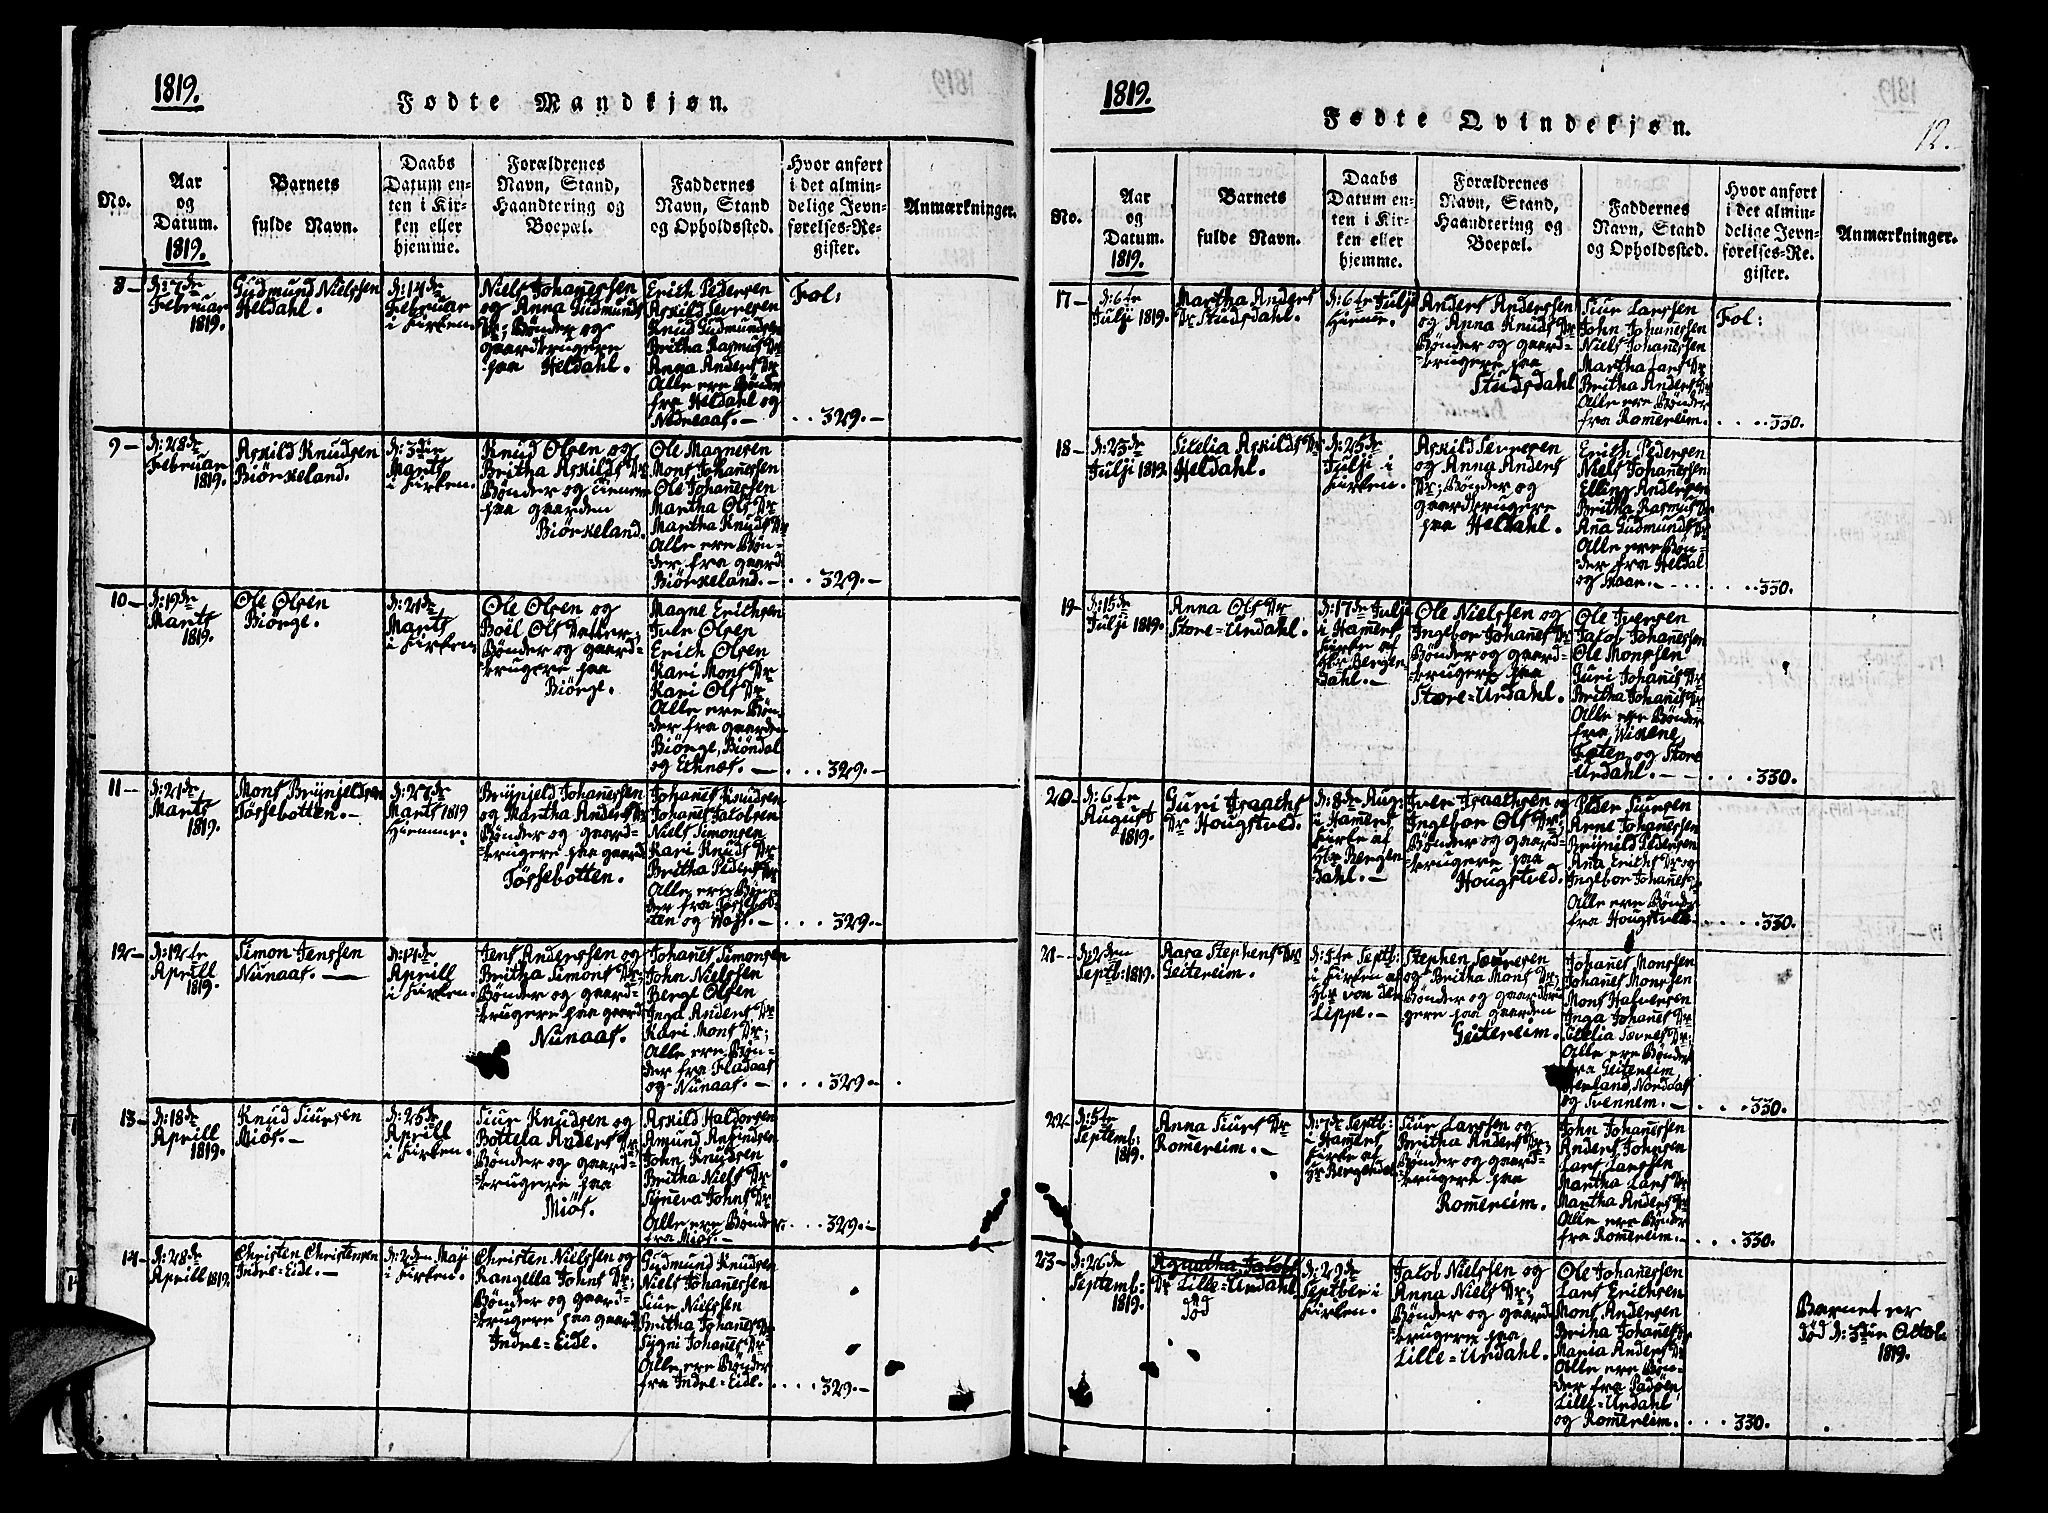 1819.
Fødte Mandkjøn.
No.
Aar
og
Datum.
1819.
Barnets
fulde Navn.
Daabs
Datum en-
ten i Kir-
ken eller
hjemme.
Forældrenes
Navn, Stand,
Haandtering og
Boepæl.
Faddernes
Navn, Stand
og Opholdssted.
Hvor anført
i det almin-
delige Jevn-
førelses-Re-
gister.
Anmærkninger.
8-
d: 7de
Februar
1819.
Gudmund Nielssen
Heldahl.
d: 14de
Februar
i Kirken.
Niels Johanessen
og Anna Gudmunds
Dr; Bønder og
gaardbrugere
paa Heldahl.
Erich Pedersen
Askild Sevresen
Knud Gudmundsen
Britha Rasmus Dr
Anna Anders Dr
Alle ere Bønder
fra Heldahl og
Nedreaas.-
Fol:
. . 329.-
9-
d: 28de
Februar
1819.
Askild Knudsen
Biörkeland.
d: 3die
Marts
i Kirken.
Knud Olsen og
Britha Askilds Dr
Bønder og tienere
paa gaarden
Biörkeland.
Ole Magnesen
Mons Johanessen
Ole Johanessen
Martha Ols Dr
Martha Knuds Dr
Alle ere Bøn-
der fra gaard
Biörkeland.-
. . 329.-
10-
d: 19de
Marts
1819.
Ole Olsen
Biörge.
d: 21de
Marts
i Kirken.
Ole Olsen og
Boël Ols Datter;
Bønder og gaard-
brugere paa
Biörge.
Magne Erichsen
Iver Olsen
Erich Olsen
Kari Mons Dr
Kari Ols Dr
Alle ere Bøn-
der fra gaarden
Biörge, Biöndal
og Echnæs.-
. . . 329.-
11-
d: 21de
Marts
1819.
Mons Brynjeldsen
Tössebotten.-
d: 27de
Marts 1819
Hiemme.
Brynjeld Johanessen
og Martha Anders Dr
Bønder og gaard-
brugere paa gaard
Tössebotten.
Johanes Knudsen
Johanes Jacobsen
Niels Simonsen
Kari Knuds Dr
Britha Peders Dr
Alle ere Bøn-
der fra Tössebot-
ten og Wass.-
. . . . 329.-
12-
d: 12te
Aprill
1819.
Simon Jenssen
Nunaas.-
d: 14de
Aprill
i Kirken.
Jens Anderssen og
Britha Simons Dr;
Bønder og gaard-
brugere paa gaard
Nunaas.
Johanes Simonsen
John Nielssen
Berge Olsen
Inga Anders Dr
Kari Mons Dr;
Alle ere Bøn-
der fra Fladaas
og Nunaas.-
. . . . 329.-
13-
d: 18de
Aprill
1819.
Knud Siursen
Miös.-
d: 25de
Aprill
i Kirken.
Siur Knudsen og
Bottela Anders Dr;
Bønder og gaard-
brugere paa
Miös.
Askild Haldorsen
Amund Anfindsen
John Knudsen
Britha Niels Dr
Syneva Johns Dr
Alle ere Bønder
fra Miös.-
. . . 329.-
14-
d: 28de
Aprill 1819.
Christen Christensen
Indre-Eide.-
d: 2den Maji
i Kirken.
Christen Nielssen og
Rangella Johns Dr;
Bønder og gaard-
brugere paa gaard
Indre-Eide.
Gudmund Knudsen
Niels Johanessen
Siur Nielssen
Britha Johanes Dr
Sygni Johanes Dr
Alle ere Bønder
fra Indre-Eide.
. . . . 329.-
1819.
Fødte Qvindekjøn.
12.
No.
Aar
og
Datum.
1819.
Barnets
fulde Navn.
Daabs
Datum en-
ten i Kir-
ken eller
hjemme.
Forældrenes
Navn, Stand,
Haandtering og
Boepæl.
Faddernes
Navn, Stand
og Opholdssted.
Hvor anført
i det almin-
delige Jevn-
førelses-Re-
gister.
Anmærkninger.
17-
d: 6te
Julji 1819.
Martha Anders
Dr Studsdahl.
d: 6te Julji
Hieme.
Anders Anderssen
og Anna Knuds Dr
Bønder og gaard-
brugere paa
Studsdahl
Siur Larssen
John Johanessen
Niels Johanessen
Martha Lars Dr
Britha Anders Dr
Alle ere Bønder
fra Romereim.
Fol:
. . . . 330.
18-
d: 23de
Julji 1819.
Sitelia Askilds Dr
Heldahl.
d: 25de
Julji i
Kirken.
Askild Sevresen
og Anna Anders
Dr; Bønder og
gaardbrugere
paa Heldahl.
Erich Pedersen
Niels Johanessen
Elling Andersen
Britha Rasmus Dr
Ana Gudmunds Dr
Alle ere Bøn-
der fra Heldal
og Skaar.-
. . . . 330.
19-
d: 15de
Julji 1819.
Anna Ols Dr
Store-Urdahl.
d: 17de Julji
i Hamers
Kirke af
Hr Bergen-
dahl.-
Ole Nielssen og
Ingebor Johanes Dr
Bønder og gaard-
brugere paa
Store-Urdahl.
Ole Iversen
Jacob Johanessen
Ole Monssen
Guri Johanes Dr
Britha Johanes Dr
Alle ere Bønder
fra Wikene,
Toten og Store
Urdahl.-
. . . . 330.
20-
d: 6te
August
1819.
Guri Isaachs
Dr Hougstved.
d: 8de Aug:
i Hamers
Kirke af
Hr Bergen
dahl.-
Iver Isaachsen og
Ingebor Ols Dr;
Bønder og gaard-
brugere paa
Hougstved.
Peder Siursen
Arne Johanessen
Brynild Pedersen
Ana Erichs Dr og
Ingebor Johanes Dr
Alle ere Bønder
fra Hougstved.
. . . . 330.
21-
d: 2den
Septb: 1819.
Aasa Stephens Dr
Geitereim.
d: 5te Septb:
i Kirken af
Hr von der
Lippe.-
Stephen Sevresen
og Britha Mons Dr;
Bønder og gaardbru-
gere paa gaarden
Geitereim.
Johanes Monssen
Johanes Monssen
Mons Halversen
Inga Johanes Dr
Sitelia Sevres Dr;
Alle ere Bønder
fra Geitereim,
Herland, Norddal
og Svennem.-
. . . . 330.
22-
d: 5te
Septemb:
1819.
Anna Siurs Dr
Romereim.-
d: 7de Septb:
i Hamers
Kirke af
Hr Bergendal
Siur Larssen og
Britha Anders Dr;
Bønder og gaard-
brugere paa
Romereim.
John Johanessen
Anders Johnsen
Lars Larssen
Martha Lars Dr
Martha Anders Dr
Alle ere Bønder
fra Romereim.-
. . . 330.
23-
d: 26de
Septemb:
1819.
Agaatha Jacobs
Dr Lille-Urdahl.
död
d: 29de
Septbre i
Kirken.
Jacob Nielssen og
Anna Niels Dr;
Bønder og gaard-
brugere paa
Lille-Urdahl.
Ole Johanessen
Lars Erichsen
Mons Andersen
Britha Johanes Dr
Maria Anders Dr
Alle ere Bøn-
der fra Padöen
Lille-Urdahl
og Romereim.
. . . 330.
Barnet er
död d: 3die Octob.
1819.